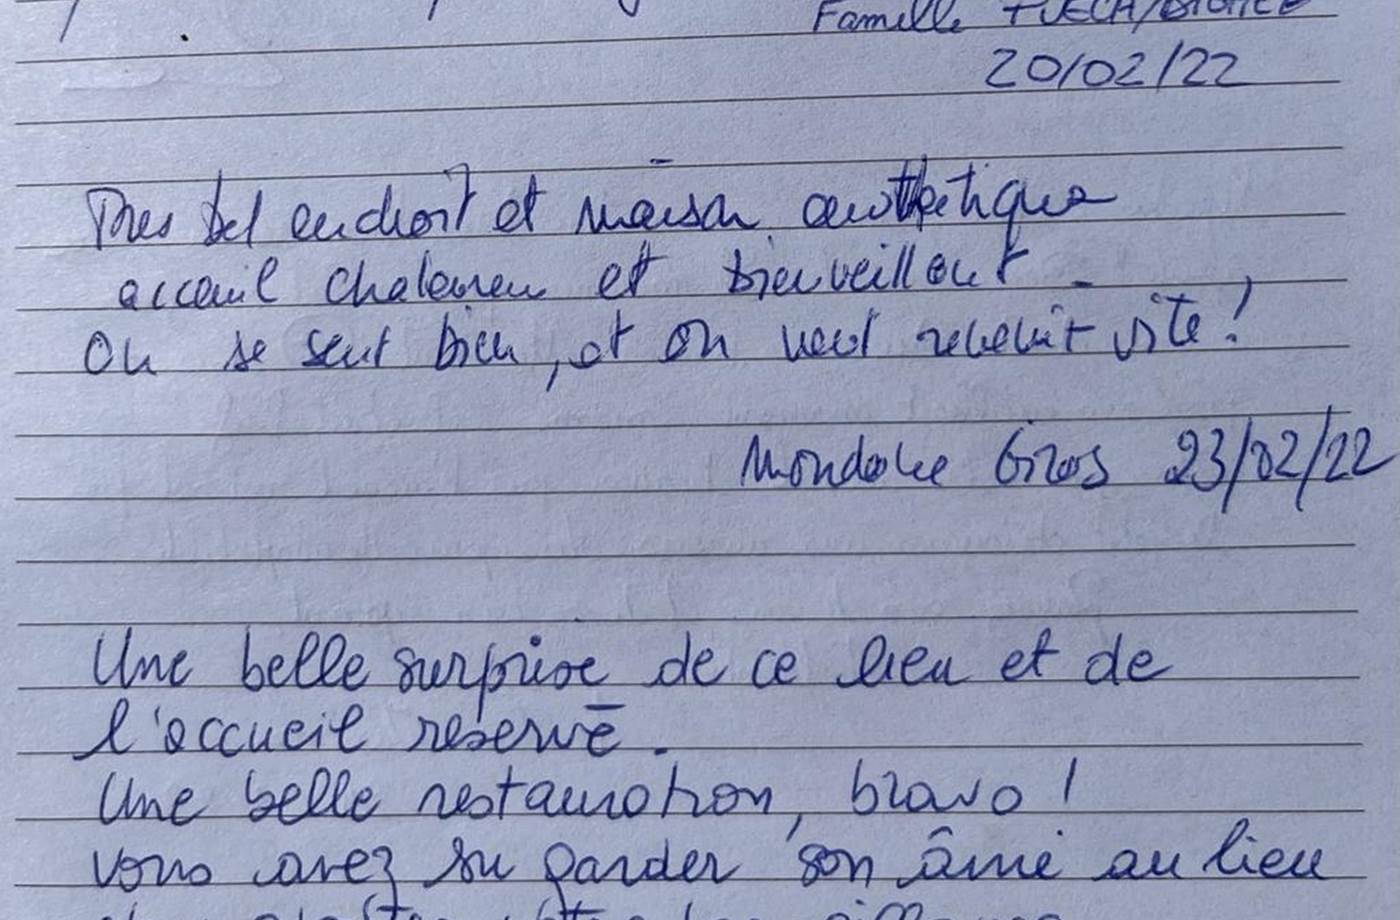 Famille
20/02/22
Tres bel endroit et maison authentique
accueil chaleureu et bienveillant.
On se sent bien, et on veut revenir vite !
Gros 23/02/22
Une belle surprise de ce lieu et de
l'accueil réservé.
Une belle restauration, bravo !
vous avez su garder son âme au lieu